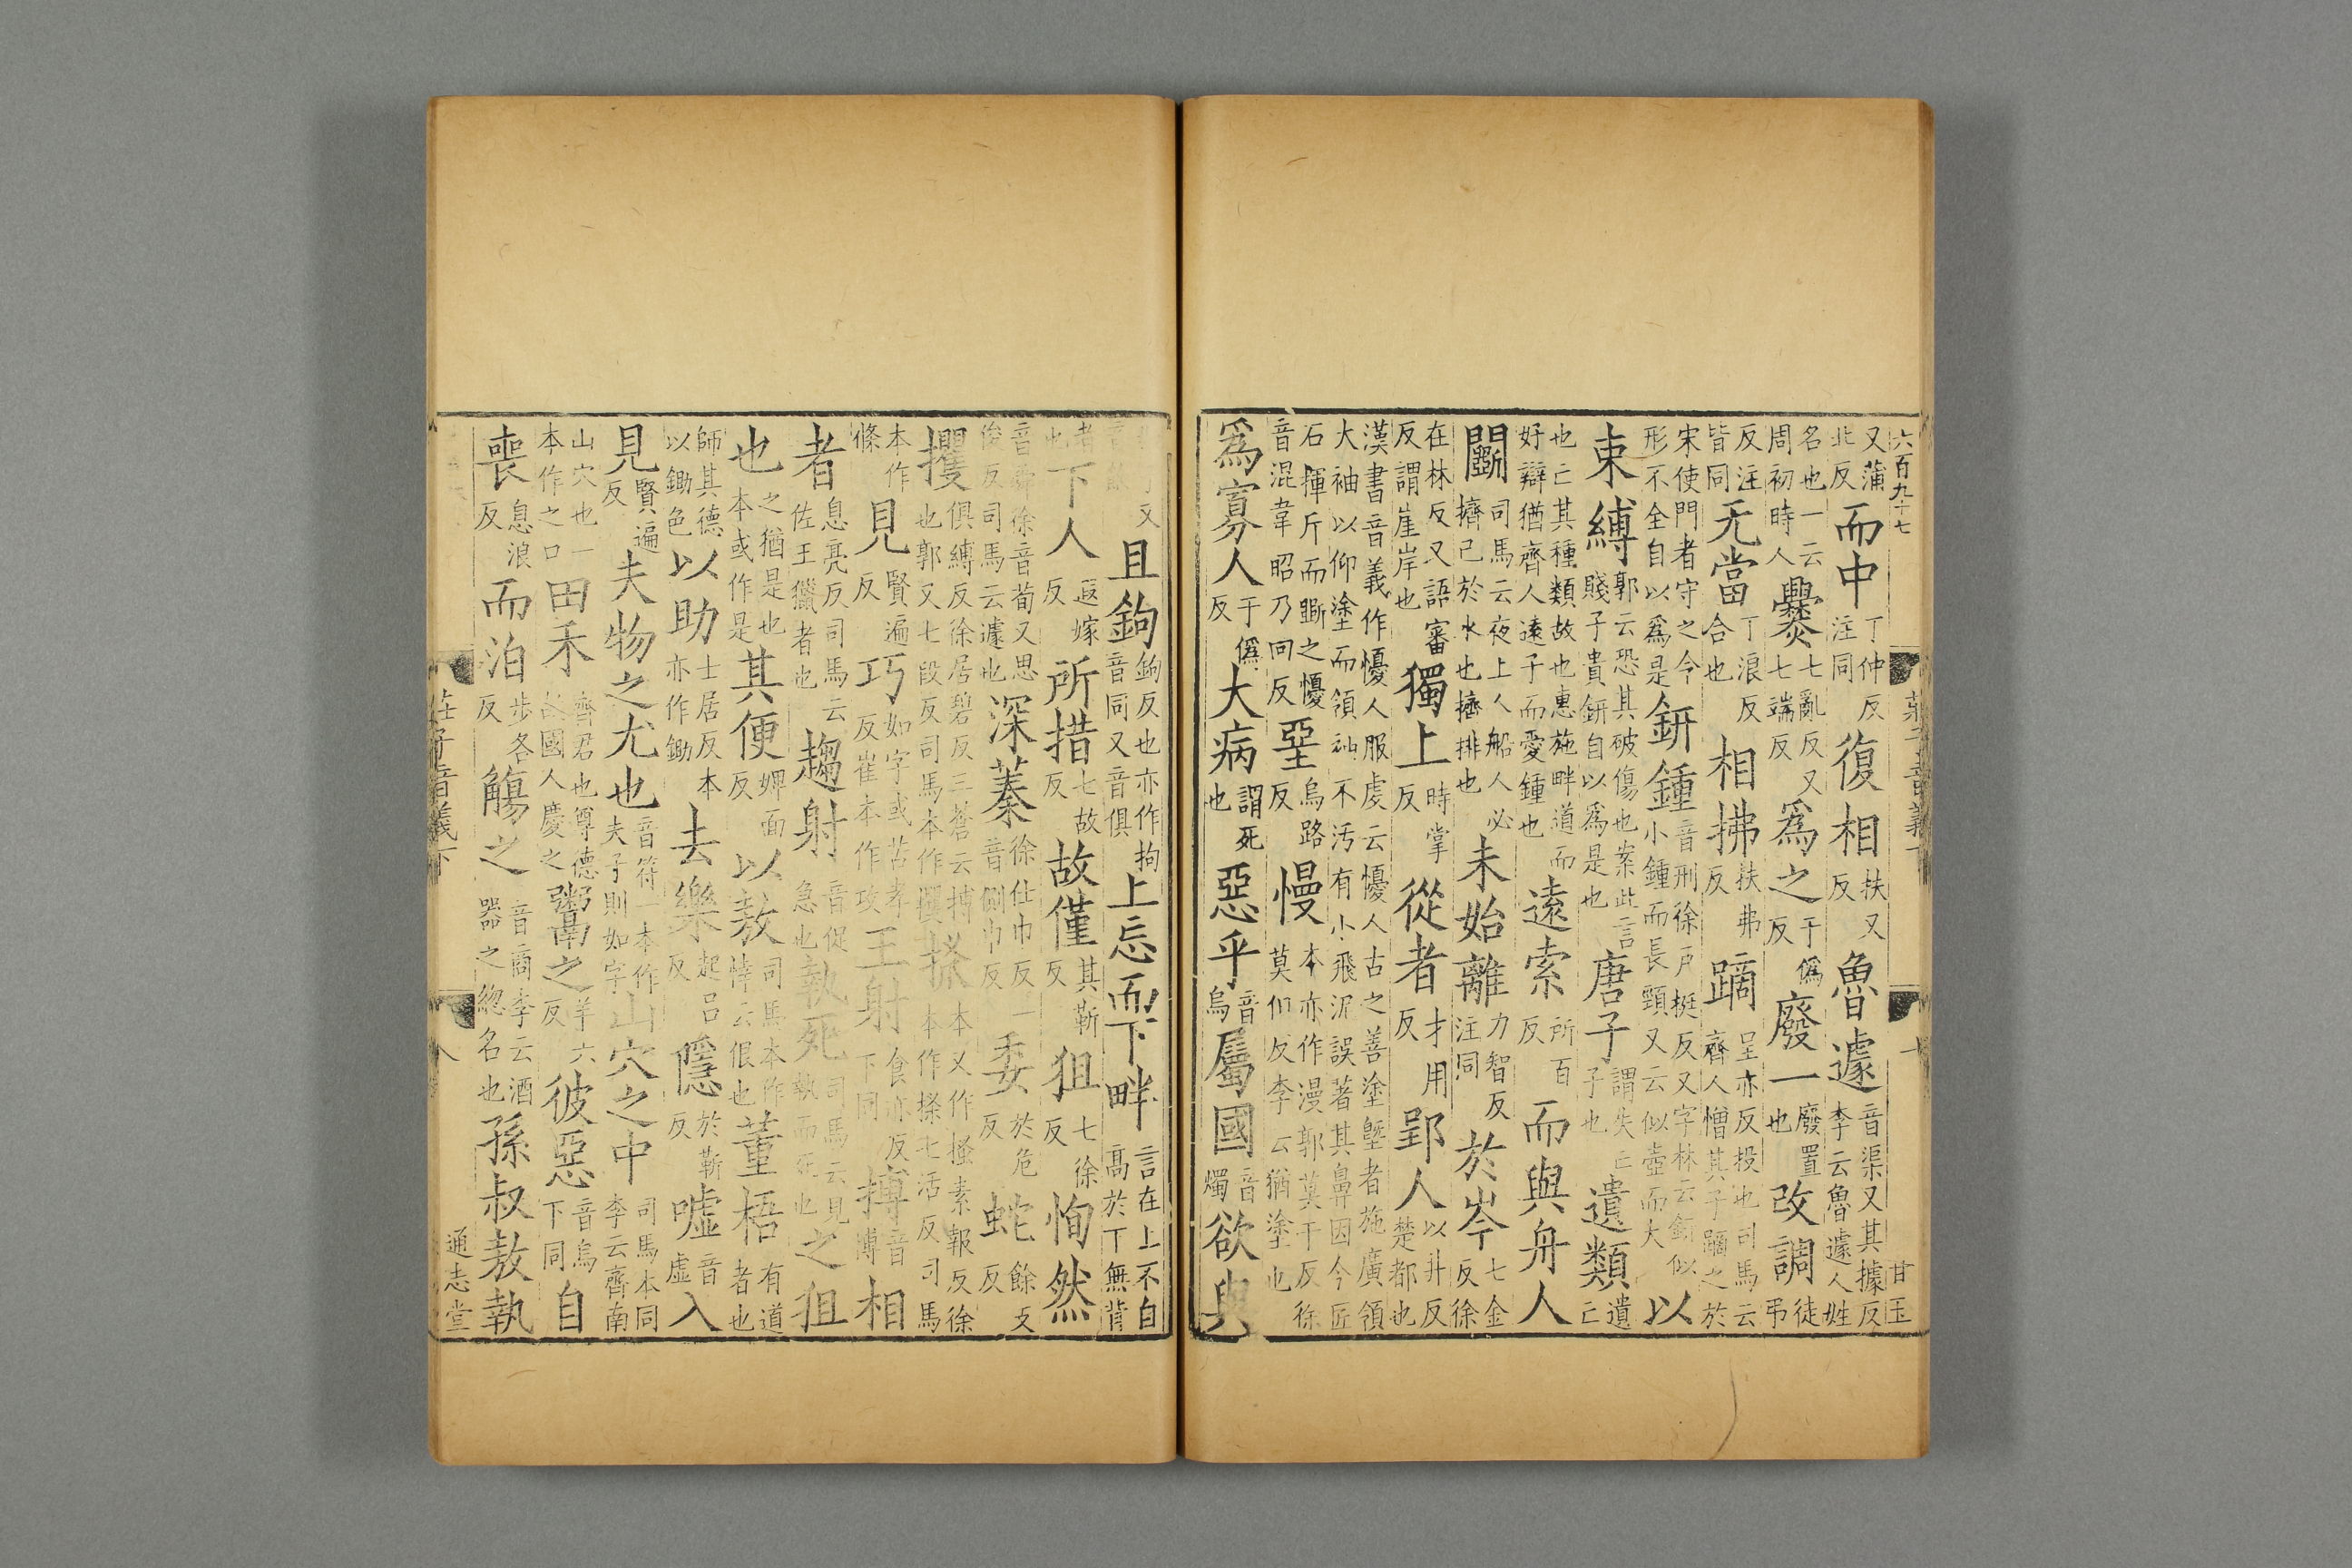 六百九十七
莊子音義下
十
甘玉
又蒲北反而中丁仲反注同復相扶又反魯遽音渠又其據反李云魯遽人姓
名也一云周初時人爨七亂反又七端反爲之于僞反廢一廢置也改調徒弔
反注皆同无當丁浪反合也相拂扶弗反蹢呈亦反投也司馬云齊人憎其子蹢之於
宋使門者守之令形不全自以爲是鈃鍾音刑徐戶挺反又字林云鈃似小鍾而長頸又云似壺而大以
束縛郭云恐其破傷也案此言賤子貴鈃自以爲是也唐子謂失亡子也遺類遺亡
也亡其種類故也惠施畔道而好辯猶齊人遠子而愛鍾也遠索所百反而與舟人
鬭司馬云夜上人船人必擠己於水也擠排也未始離力智反注同於岑七金反徐
在林反又語審反謂崖岸也獨上時掌反從者才用反郢人以井反楚都也
漢書音義作懮人服虔云懮人古之善塗塈者施廣領大袖以仰塗而領袖不汚有小飛泥誤著其鼻因令匠
石揮斤而斲之懮音混韋昭乃回反堊烏路反慢本亦作漫郭莫干反徐莫但反李云猶塗也
爲寡人于僞反大病謂死也惡乎音烏屬國音燭欲與
又且鉤鉤反也亦作拘音同又音俱上忘而下畔言在上不自高於下無背
者也下人遐嫁反所措七故反故僅其靳反狙七徐反恂然
音舜徐音荀又思俊反司馬云遽也深蓁徐仕巾反一音側巾反委於危反蛇餘支反
攫俱縛反徐居碧反三蒼云搏也郭又七段反司馬本作攫搔本又作搔素報反徐本作㩮七活反司馬
本作條見賢遍反巧如字或苦孝反崔本作攻王射食亦反下同搏音博相
者息亮反司馬云佐王獵者也趨射音促急也執死司馬云見執而死也之狙
也之猶是也本或作是其便婢面反以敖司馬本作悖云佷也董梧有道者也
師其德以鋤色以助士居反本亦作鋤去樂起呂反隱於靳反噓音虛入
見賢遍反夫物之尤也音符一本作夫子則如字山穴之中司馬本同李云齊南
山穴也一本作之口田禾齊君也尊德故國人慶之鬻之羊六反彼惡音烏下同自
喪息浪反而泊步各反觴之音商李云酒器之總名也孫叔敖執
莊子音義下
八
通志堂